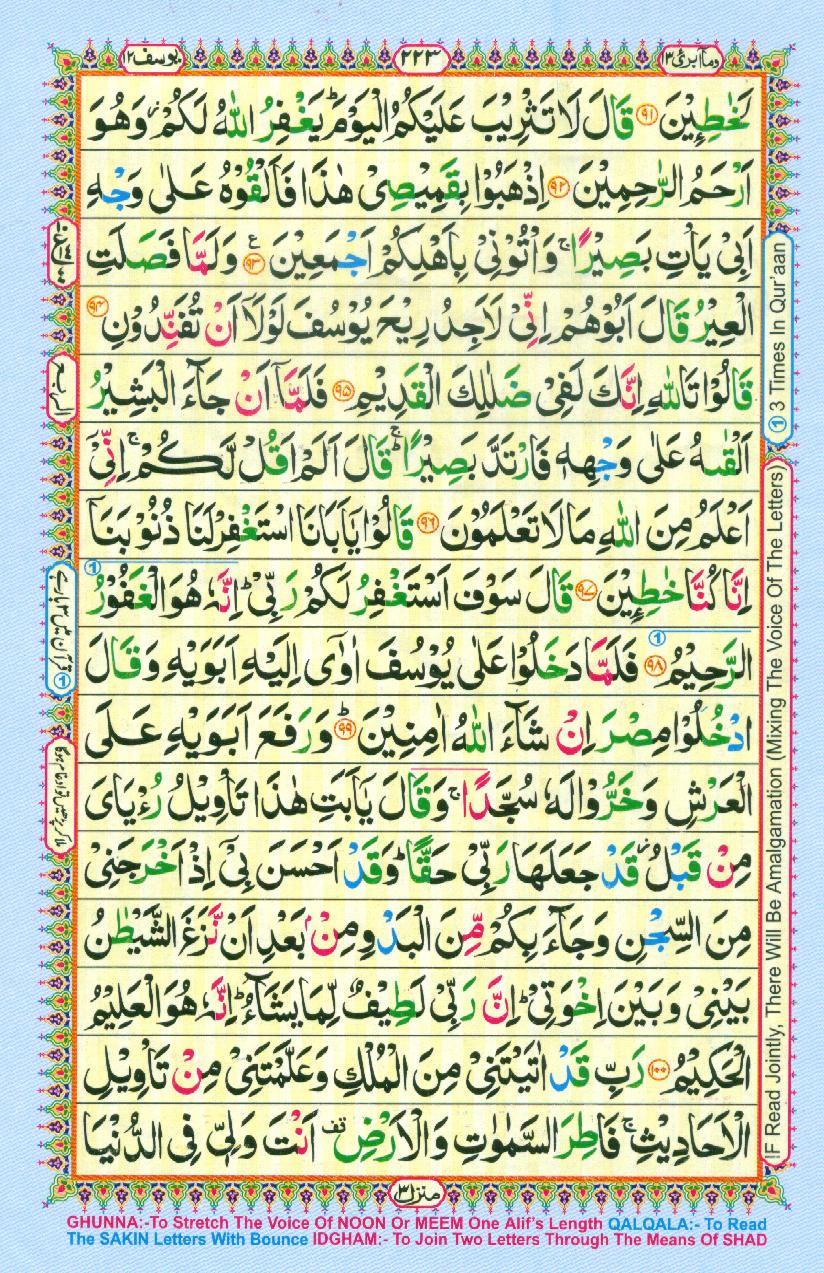 وما ابرئ ١٣
٢٢٣
يوسف ١٢
لَخٰطِـِٕيْنَ ﴿٩١﴾ قَالَ لَا تَثْرِيْبَ عَلَيْكُمُ الْيَوْمَ ؕ يَغْفِرُ اللّٰهُ لَكُمْ ؗ وَهُوَ
اَرْحَمُ الرّٰحِمِيْنَ ﴿٩٢﴾ اِذْهَبُوْا بِقَمِيْصِىْ هٰذَا فَاَلْقُوْهُ عَلٰى وَجْهِ
اَبِىْ يَاْتِ بَصِيْرًا ۚ وَاْتُوْنِىْ بِاَهْلِكُمْ اَجْمَعِيْنَ ﴿٩٣﴾ ع وَلَمَّا فَصَلَتِ
الْعِيْرُ قَالَ اَبُوْهُمْ اِنِّىْ لَاَجِدُ رِيْحَ يُوْسُفَ لَوْلَاۤ اَنْ تُفَنِّدُوْنِ ﴿٩٤﴾
قَالُوْا تَاللّٰهِ اِنَّكَ لَفِىْ ضَلٰلِكَ الْقَدِيْمِ ﴿٩٥﴾ فَلَمَّاۤ اَنْ جَآءَ الْبَشِيْرُ
اَلْقٰٮهُ عَلٰى وَجْهِهٖ فَارْتَدَّ بَصِيْرًا ۚ قَالَ اَلَمْ اَقُلْ لَّكُمْ ۚ اِنِّىْۤ
اَعْلَمُ مِنَ اللّٰهِ مَا لَا تَعْلَمُوْنَ ﴿٩٦﴾ قَالُوْا يٰۤاَبَانَا اسْتَغْفِرْ لَنَا ذُنُوْبَنَاۤ
اِنَّا كُنَّا خٰطِـِٕيْنَ ﴿٩٧﴾ قَالَ سَوْفَ اَسْتَغْفِرُ لَكُمْ رَبِّىْ ؕ اِنَّهٗ هُوَ الْغَفُوْرُ
الرَّحِيْمُ ﴿٩٨﴾ فَلَمَّا دَخَلُوْا عَلٰى يُوْسُفَ اٰوٰٓى اِلَيْهِ اَبَوَيْهِ وَقَالَ
ادْخُلُوْا مِصْرَ اِنْ شَآءَ اللّٰهُ اٰمِنِيْنَ ؕ ﴿٩٩﴾ وَرَفَعَ اَبَوَيْهِ عَلَى
الْعَرْشِ وَخَرُّوْا لَهٗ سُجَّدًا ۚ وَقَالَ يٰۤاَبَتِ هٰذَا تَاْوِيْلُ رُءْيَاىَ
مِنْ قَبْلُ ؗ قَدْ جَعَلَهَا رَبِّىْ حَقًّا ؕ وَقَدْ اَحْسَنَ بِىْۤ اِذْ اَخْرَجَنِىْ
مِنَ السِّجْنِ وَجَآءَ بِكُمْ مِّنَ الْبَدْوِ مِنْۢ بَعْدِ اَنْ نَّزَغَ الشَّيْطٰنُ
بَيْنِىْ وَبَيْنَ اِخْوَتِىْ ؕ اِنَّ رَبِّىْ لَطِيْفٌ لِّمَا يَشَآءُ ؕ اِنَّهٗ هُوَ الْعَلِيْمُ
الْحَكِيْمُ ﴿١٠٠﴾ رَبِّ قَدْ اٰتَيْتَنِىْ مِنَ الْمُلْكِ وَعَلَّمْتَنِىْ مِنْ تَاْوِيْلِ
الْاَحَادِيْثِ ۚ فَاطِرَ السَّمٰوٰتِ وَالْاَرْضِ قف اَنْتَ وَلِىّٖ فِى الدُّنْيَا
الربع
① قرآن میں ۳ بار ہے
ملا کر پڑھیں تو ادغام ہوگا
① 3 Times In Qur'aan
IF Read Jointly, There Will Be Amalgamation (Mixing The Voice Of The Letters)
منزل ٣
GHUNNA:-To Stretch The Voice Of NOON Or MEEM One Alif's Length QALQALA:- To Read
The SAKIN Letters With Bounce IDGHAM:- To Join Two Letters Through The Means Of SHAD